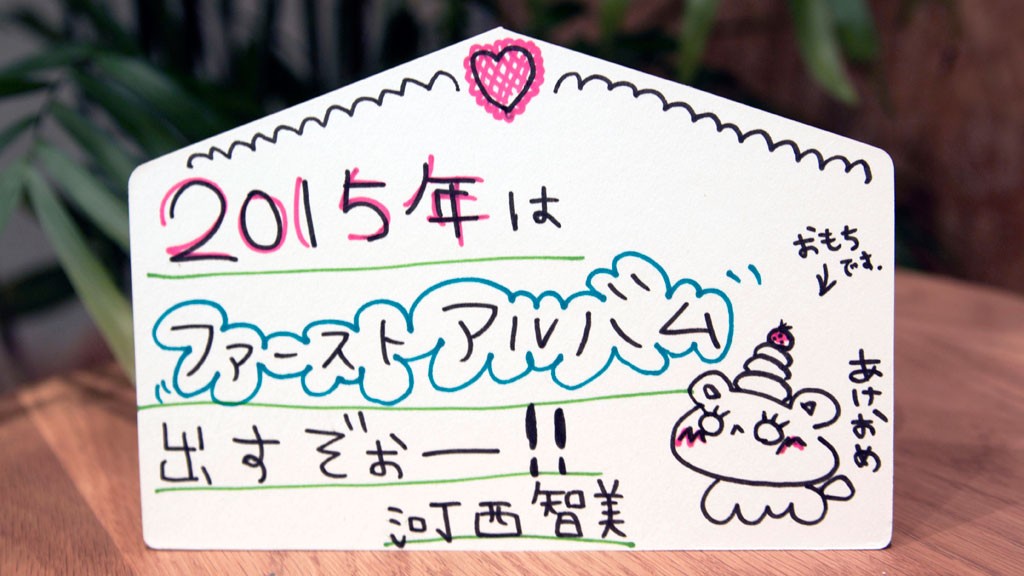 2015年は
ファースト アルバム
出すぞぉー!!
河西智美
おもち
です.
あけおめ